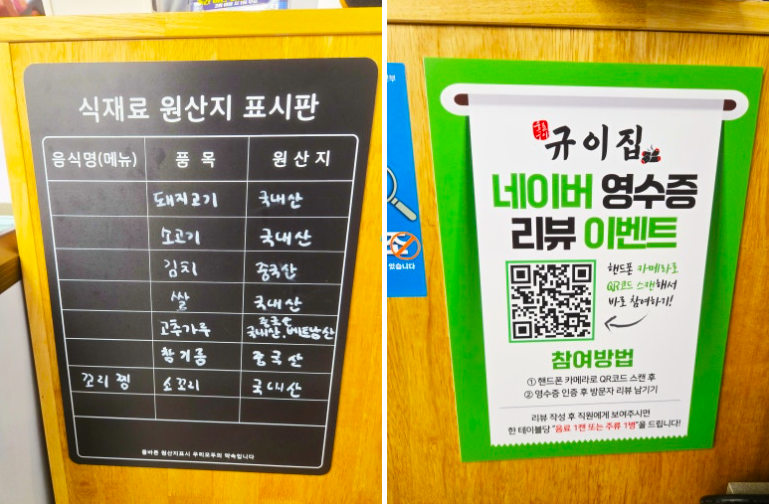 식재료 원산지 표시판
음식명(메뉴) 품 목 원 산 지
돼지고기 국내산
소고기 국내산
김치 중국산
쌀 국내산
고추가루 중국산 국내산, 베트남산
참기름 중국산
꼬리찜 소꼬리 국내산
올바른 원산지표시 우리모두의 약속입니다
규이집
네이버 영수증
리뷰 이벤트
핸드폰 카메라로
QR코드 스캔해서
바로 참여하기!
참여방법
① 핸드폰 카메라로 QR코드 스캔 후
② 영수증 인증 후 방문자 리뷰 남기기
리뷰 작성 후 직원에게 보여주시면
한 테이블당 "음료 1캔 또는 주류 1병"을 드립니다!
있습니다